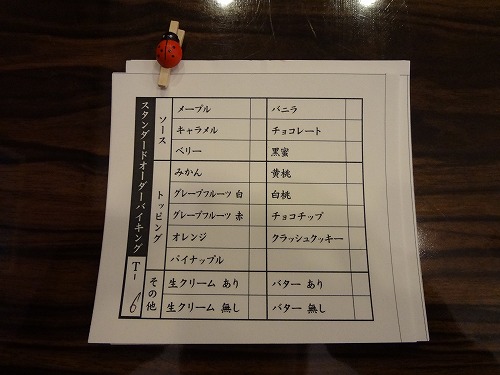 スタンダードオーダーバイキング
T- 6
ソース
メープル バニラ
キャラメル チョコレート
ベリー 黒蜜
トッピング
みかん 黄桃
グレープフルーツ 白 白桃
グレープフルーツ 赤 チョコチップ
オレンジ クラッシュクッキー
パイナップル
その他
生クリーム あり バター あり
生クリーム 無し バター 無し